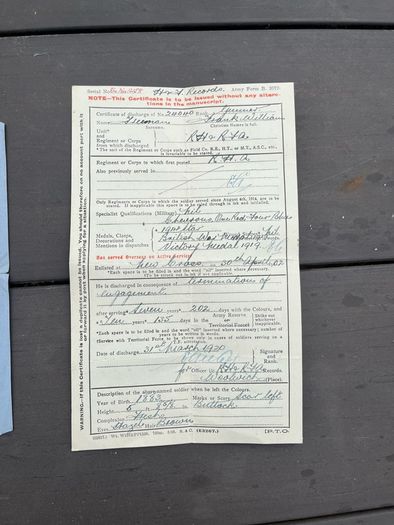 Serial No.
R.H. & F. Records.
Army Form B. 2079.
NOTE—This Certificate is to be issued without any alterations in the manuscript.
Certificate of discharge of No. 24040 Rank Gunner
Name Frank William
Surname. Christian Names in full.
Unit*
and
Regiment or Corps
from which discharged
R.H. & R.F.A.
* The unit of the Regiment or Corps such as Field Co. R.E., H.T., or M.T., A.S.C., etc.
is invariably to be stated.
Regiment or Corps to which first posted R.F.A.
Also previously served in
Only Regiments or Corps in which the soldier served since August 4th, 1914, are to be
stated. If inapplicable this space is to be ruled through in ink and initialled.
Specialist Qualifications (Military) Nil
Chevrons, One Red Four Blue
1914 Star
Medals, Clasps,
Decorations and
Mentions in dispatches
British War Medal
Victory Medal 1919.
Has served Overseas on Active Service.
Enlisted at New Cross on 30th
*Each space is to be filled in and the word "nil" inserted where necessary.
†To be struck out in ink if not applicable.
He is discharged in consequence of termination of
engagement.
after serving* Seven years* 202 days with the Colours, and
* Ten years* 135 days in the Army Reserve or Territorial Force
Strike out whichever inapplicable.
*Each space is to be filled in and the word "nil" inserted where necessary; number of
years to be written in words.
(Service with Territorial Force to be shown only in cases of soldiers serving on a
T.F. attestation.)
Date of discharge 31st March 1920
Signature
and
Rank.
for Officer i/c R.H. & R.F.A. Records.
Woolwich (Place).
Description of the above-named soldier when he left the Colours.
Year of Birth 1883 Marks or Scars Scar left
Height ft. in. Buttock
Complexion Fresh
Eyes Hazel Hair Brown
(E3267.) (P.T.O.
WARNING—If this Certificate is lost a duplicate cannot be issued. You should therefore on no account part with it
or forward it by post when applying for a situation.